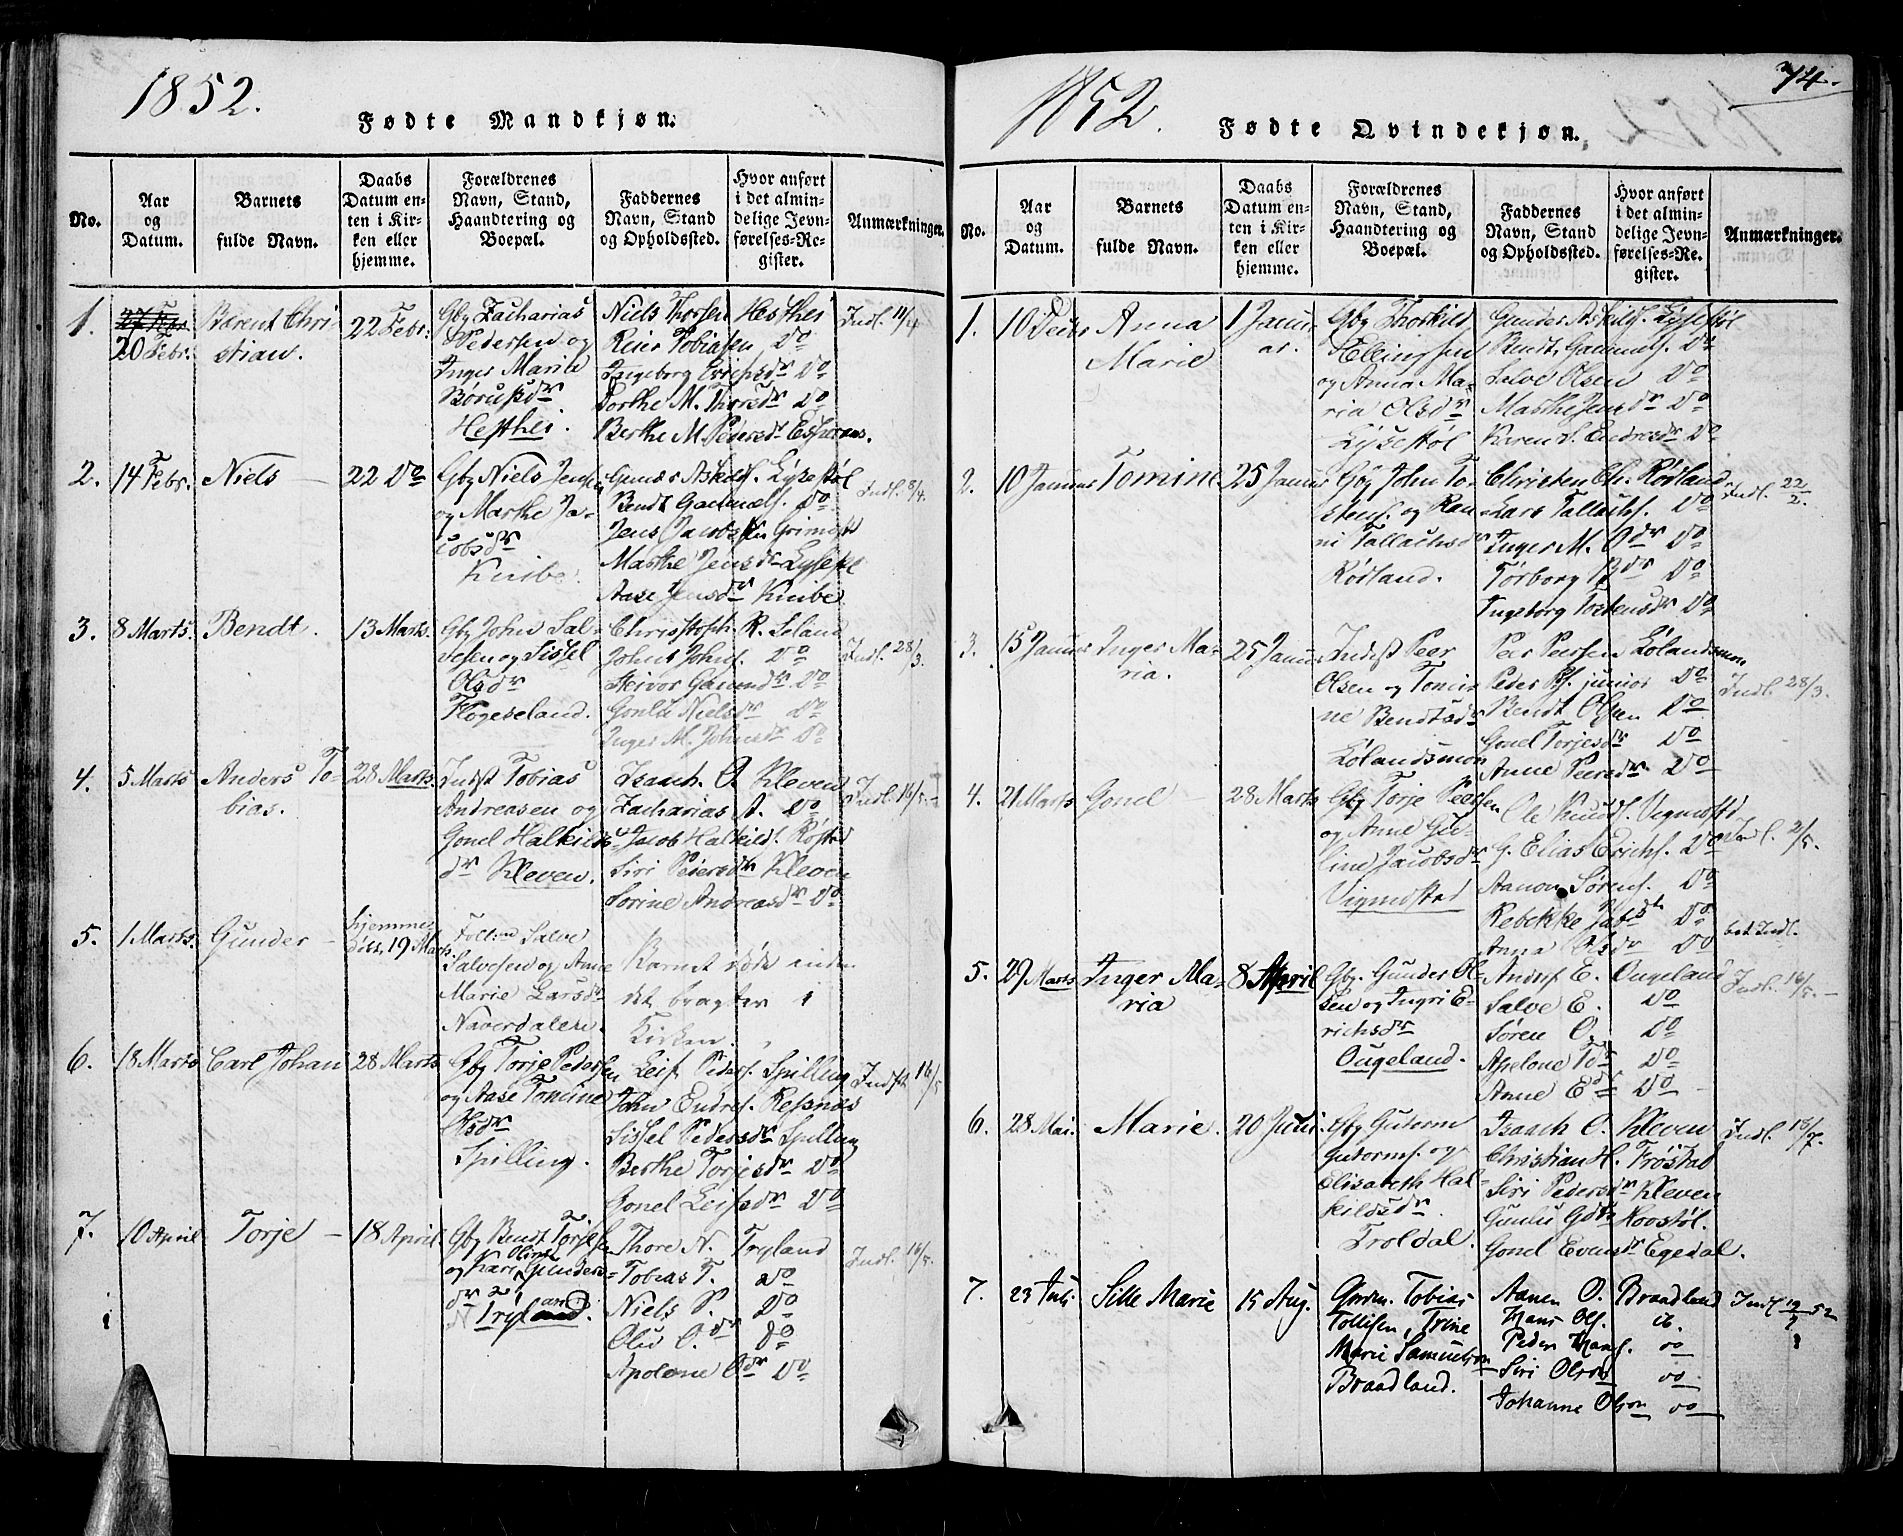 1852.
Fødte Mandkjøn.
No.
Aar og Datum.
Barnets fulde Navn.
Daabs Datum enten i Kirken eller hjemme.
Forældrenes Navn, Stand, Haandtering og Boepæl.
Faddernes Navn, Stand og Opholdssted.
Hvor anført i det almindelige Jevnførelses-Register.
Anmærkninger.
1.
20 Febr.
Bærent Christian.
22 Febr.
Gbr Zacharias
Pedersen og
Inger Marie
Børufsdr
Hesthei.
Niels Thorsen Hesthei
Reier Tobiasen Do
Ingeborg Do
Dorthe M. Thorsdr Do
Berthe M. Pedersdr
Indl. 11/4
2.
14 Febr.
Niels
22 Do
Gbr Niels Jensen
og Marthe Ja-
cobsdr
Knibe.
Gunder Askeldsf. Lysestøl
Bendt Gaumelsf. Do
Jens Jacobsen
Marthe Jensdr
Aase Jensdr Knibe
Indl. 8/4.
3.
8 Marts.
Bendt.
13 Marts.
Gbr John Sal-
vesen og Sissel
Olsdr
Fløgeseland.
Christoph. R. Loland
John Johnsf. Do
Do
Nielsdr Do
Inger M. Johnsdr Do
Indl. 28/3.
4.
5 Marts
Anders To-
bias.
28 Marts.
Indst Tobias
Andreasen og
Gonel Halkilds-
dr Kleven.
Isaach O. Kleven
Zacharias A. Do
Jacob Halkilds.
Siri Pedersdr Kleven
Sorine Andreasdr Do
Indl. 16/5.
5.
1 Marts.
Gunder
19 Marts.
Salve
Salvesen og Anne
Marie Larsdr
Naverdalen.
Barnet døde inden
det bragtes i
Kirken.
6.
18 Marts
Carl Johan
28 Marts
Gbr Torje Pedersen
og Aase Tomine
Olsdr
Spilling.
Leif Pedersf. Spilling
John Endresf. Resnæs
Sissel Pedersdr Spilling
Berthe Torjesdr Do
Gonel Leifsdr Do
Indl. 16/5
7.
10 April
Torje
18 April
Gbr Bendt Torjesen
og Kari Oline Gunders-
dr
Tryland.
Thore N. Tryland
Tobias T. Do
Niels P. Do
Oliv O.dr Do
Apolone Odr Do
Indl. 16/5.
1852.
74.
Fødte Qvindekjøn.
No.
Aar og Datum.
Barnets fulde Navn.
Daabs Datum enten i Kirken eller hjemme.
Forældrenes Navn, Stand, Haandtering og Boepæl.
Faddernes Navn, Stand og Opholdssted.
Hvor anført i det almindelige Jevnførelses-Register.
Anmærkninger.
1.
10 Decbr
Anna
Marie
1 Janu-
ar.
Gbr Thorkild
Ellingsen
og Anna Ma-
ria Olsdr
Lysestøl
Gunder Askildsf. Lysestøl
Bendt Gaumelsf. Do
Salve Olsen Do
Marthe Jensdr Do
Karen S. Endresdr Do
2.
10 Januar
Tomine
25 Januar
Gbr John To-
stensf. og Ran-
ni Tallachsdr
Rødland.
Christen Rødland
Lars Tallachsf. Do
Inger M. Odr Do
Torborg Do
Ingeborg Tostensdr Do
Indl. 22/2.
3.
15 Januar
Inger Ma-
ria.
25 Januar
Indst Peer
Olsen og Tomi-
ne Bendtsdr
Lølandsmon
Peer Peersen Lølandsmon
Peder Pf. junior Do
Bendt Olsen Do
Gonel Torjesdr Do
Anne Peersdr Do
Indl. 28/3.
4.
21 Marts
Gonel
28 Marts
Gbr Torje Peersen
og Anne Gu-
line Jacobsdr
Vigmostad
Ole Knudsf. Vigmostad
G. Elias Erichsf. Do
Aanon Sørensf. Do
Rebekke Do
Anna Olsdr Do
Indl. 2/5.
bet Indl.
5.
29 Marts
Inger Ma-
ria
8 April
Gbr. Gunder Ol-
sen og Ingri E-
richsdr
Ougeland.
Andrs E. Ougeland
Salve E. Do
Søren O. Do
Apelone Do
Anne Edr Do
Indl. 16/5.
6.
28 Mai.
Marie.
20 Juni.
Gbr Gutorm
Gutormsf. og
Elisabeth Hal-
kildsdr.
Troldal.
Isaach O. Kleven
Christian H. Trøstad
Siri Pedersdr Kleven
Gunlu Gdtr Hoostøl.
Gonel Evensdr Egedal.
Indl. 18/7.
7.
23 Juli
Sille Marie
15 Aug.
Tobias
Tollisen, Trine
Marie Samuelsen
Braadland.
Aanen O. Braadland
Hans Olsf. ib.
Peder Hansf. do
Siri Olsdr do
Johanne Olsen do
Indl